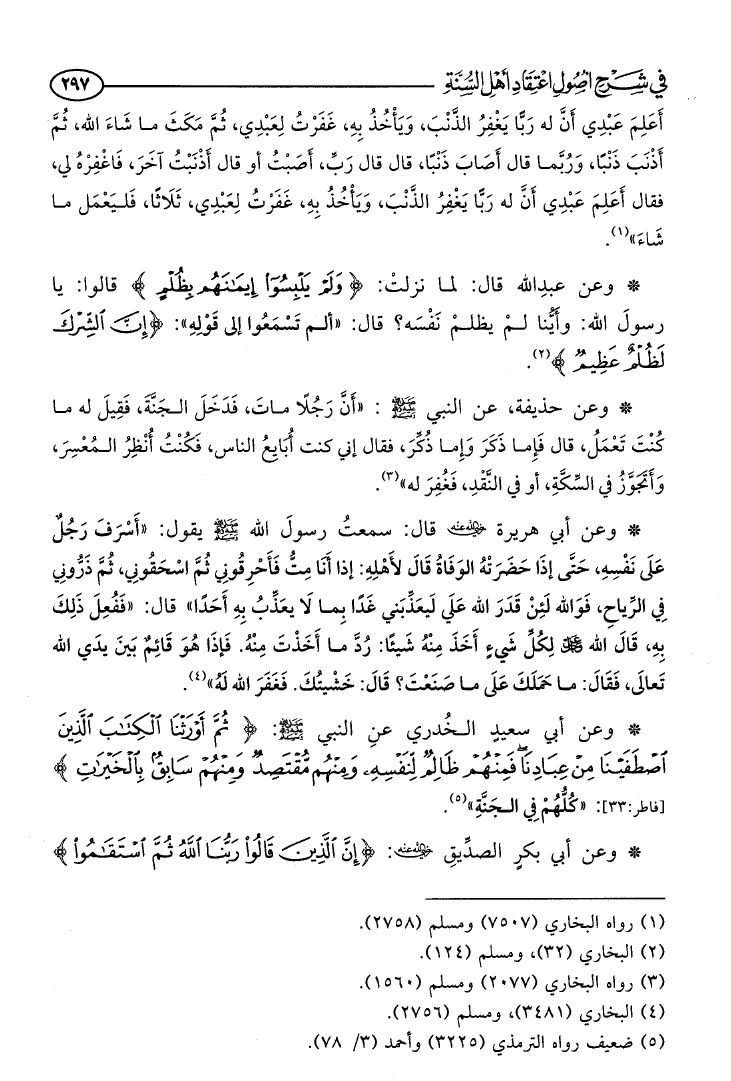 في شرح أصول اعتقاد أهل السنة
٢٩٧
أَعَلِمَ عَبْدِي أَنَّ له رَبًّا يَغْفِرُ الذَّنْبَ، وَيَأْخُذُ بِهِ، غَفَرْتُ لِعَبْدِي، ثُمَّ مَكَثَ ما شَاءَ الله، ثُمَّ
أَذْنَبَ ذَنْبًا، وَرُبَّما قال أَصَابَ ذَنْبًا، قال قال رَبِّ، أَصَبْتُ أو قال أَذْنَبْتُ آخَرَ، فَاغْفِرْهُ لي،
فقال أَعَلِمَ عَبْدِي أَنَّ له رَبًّا يَغْفِرُ الذَّنْبَ، وَيَأْخُذُ بِهِ، غَفَرْتُ لِعَبْدِي، ثَلَاثًا، فَلْيَعْمَل ما
شَاءَ»(١).
* وعن عبدِالله قال: لما نزلتْ: ﴿ وَلَمْ يَلْبِسُوٓا۟ إِيمَـٰنَهُم بِظُلْمٍ ﴾ قالوا: يا
رسولَ الله: وأيُّنا لـمْ يظلمْ نَفْسَه؟ قال: «ألـم تَسْمَعُوا إلى قَوْلِهِ»: ﴿إِنَّ ٱلشِّرْكَ
لَظُلْمٌ عَظِيمٌ ﴾(٢).
* وعن حذيفة، عن النبي ﷺ : «أَنَّ رَجُلًا ماتَ، فَدَخَلَ الـجَنَّةَ، فَقِيلَ له ما
كُنْتَ تَعْمَلُ، قال فَإِما ذَكَرَ وَإِما ذُكِّرَ، فقال إني كنت أُبَايِعُ الناس، فَكُنْتُ أُنْظِرُ الـمُعْسِرَ،
وَأَتَجَوَّزُ في السِّكَّةِ، أو في النَّقْدِ، فَغُفِرَ له»(٣).
* وعن أبي هريرة رضي الله عنه قال: سمعتُ رسولَ الله ﷺ يقول: «أَسْرَفَ رَجُلٌ
عَلَى نَفْسِهِ، حَتَّى إذَا حَضَرَتْهُ الوَفَاةُ قَالَ لأَهْلِهِ: إذا أَنَا مِتُّ فَأَحْرِقُوني ثُمَّ اسْحَقُوني، ثُمَّ ذَرُّوني
فِي الرِّياحِ، فَوَالله لَئِنْ قَدَرَ الله عَلَي لَيعَذِّبَني غَدًا بِما لَا يعَذِّبُ بِهِ أَحَدًا» قال: «فَفُعِلَ ذَلِكَ
بِهِ، قَالَ الله ﷻ لِكُلِّ شَيءٍ أَخَذَ مِنْهُ شَيئًا: رُدَّ ما أَخَذْتَ مِنْهُ. فَإِذَا هُوَ قَائِمٌ بَينَ يدَي الله
تَعالَى، فَقَالَ: ما حَمَلَكَ عَلَى ما صَنَعْتَ؟ قَالَ: خَشْيتُكَ. فَغَفَرَ الله لَهُ»(٤).
* وعن أبي سعيدٍ الـخُدري عنِ النبي ﷺ: ﴿ ثُمَّ أَوْرَثْنَا ٱلْكِتَـٰبَ ٱلَّذِينَ
ٱصْطَفَيْنَا مِنْ عِبَادِنَا ۖ فَمِنْهُمْ ظَالِمٌ لِّنَفْسِهِۦ وَمِنْهُم مُّقْتَصِدٌ وَمِنْهُمْ سَابِقٌۢ بِٱلْخَيْرَٰتِ ﴾
[فاطر:٣٣]: «كُلُّهُمْ فِي الـجَنَّةِ»(٥).
* وعن أبي بكرٍ الصدِّيقِ رضي الله عنه: ﴿إِنَّ ٱلَّذِينَ قَالُوا۟ رَبُّنَا ٱللَّهُ ثُمَّ ٱسْتَقَـٰمُوا۟ ﴾
(١) رواه البخاري (٧٥٠٧) ومسلم (٢٧٥٨).
(٢) البخاري (٣٢)، ومسلم (١٢٤).
(٣) رواه البخاري (٢٠٧٧) ومسلم (١٥٦٠).
(٤) البخاري (٣٤٨١)، ومسلم (٢٧٥٦).
(٥) ضعيف رواه الترمذي (٣٢٢٥) وأحمد (٣/ ٧٨).